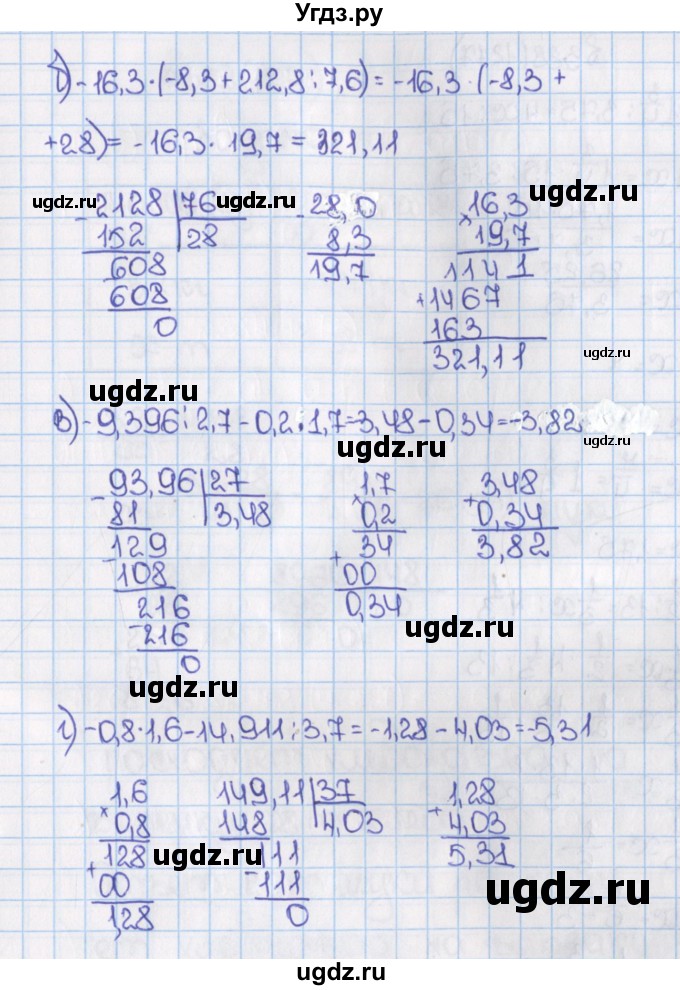 Угдз.ру
б) -16,3·(-8,3+212,8:7,6)=-16,3·(-8,3+
+28)= -16,3·19,7=321,11
ugdz.ru -2128 |76 ugdz.ru -28,0 16,3 ugdz.ru
152 |28 8,3 ×19,7
608 19,7 1141
608 +1467
0 163 ugdz.ru
321,11
ugdz.ru
в) -9,396:2,7-0,2·1,7=3,48-0,34=-3,82 ugdz.ru
-93,96 |27 1,7 3,48
81 |3,48 ×0,2 +0,34
129 34 3,82
108 +00
216 0,34
-216 ugdz.ru
0
ugdz.ru
г) -0,8·1,6-14,911:3,7=-1,28-4,03=-5,31
1,6 149,11 |37 1,28
×0,8 148 |4,03 +4,03
+128 ugdz.ru 111 5,31
00 -111 ugdz.ru
1,28 0
ugdz.ru